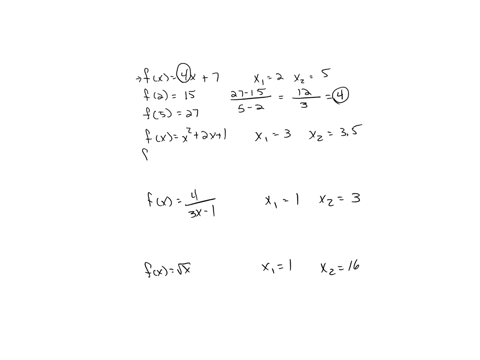 → f(x) = 4x + 7 x₁ = 2 x₂ = 5
f(2) = 15 27-15/5-2 = 12/3 = 4
f(5) = 27
f(x) = x² + 2x + 1 x₁ = 3 x₂ = 3.5
f
f(x) = 4/3x-1 x₁ = 1 x₂ = 3
f(x) = √x x₁ = 1 x₂ = 16